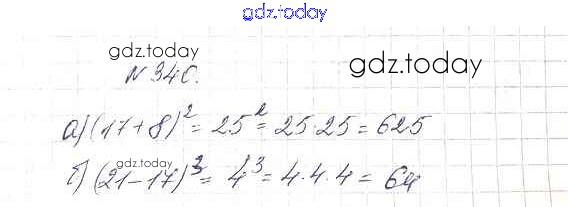 gdz.today
gdz.today
gdz.today
№ 340.
а) (17+8)² = 25² = 25·25 = 625
gdz.today
б) (21−17)³ = 4³ = 4·4·4 = 64